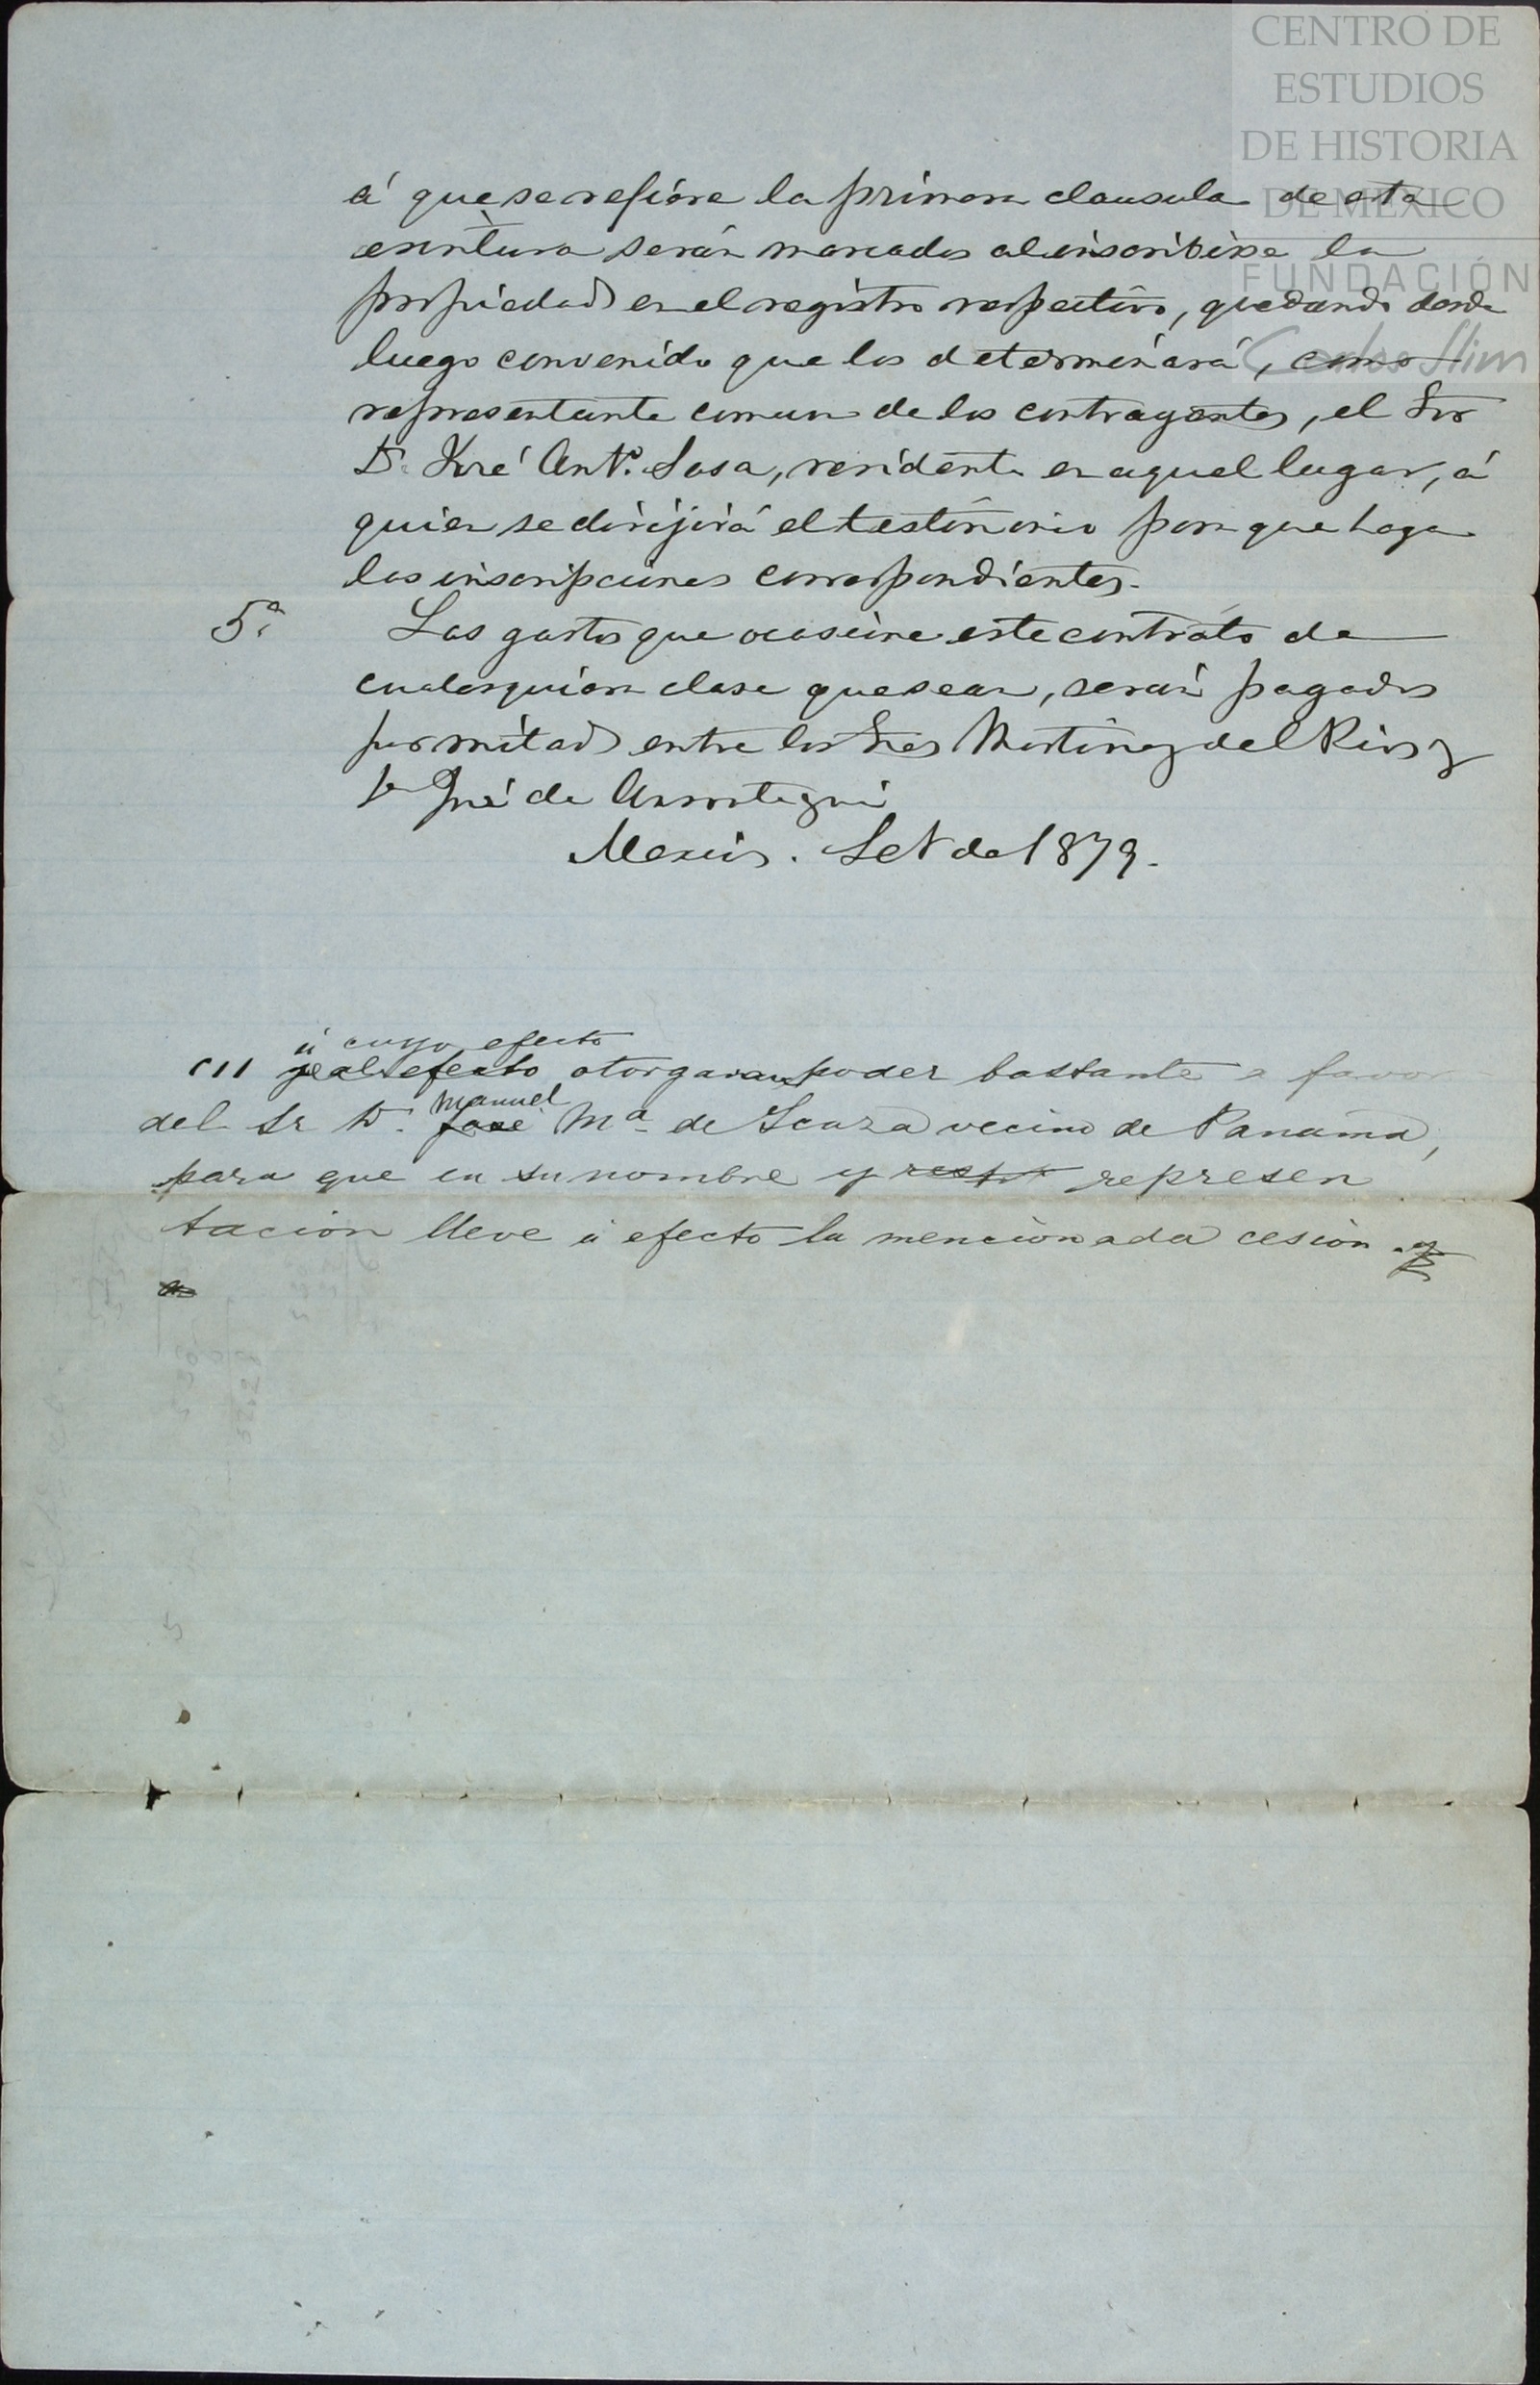 CENTRO DE
ESTUDIOS
DE HISTORIA
DE MÉXICO
FUNDACIÓN
Carlos Slim
á que se refiere la primera clausula de esta
escritura serán marcados al inscribirse la
propiedad en el registro respectivo, quedando desde
luego convenido que los determinará, como
representante comun de los contrayentes, el Sor
Dn José Anto. Sosa, residente en aquel lugar, á
quien se dirijirá el testimonio para que haga
las inscripciones correspondientes.
5a. Los gastos que ocasione este contrato de
cualesquiera clase que sean, serán pagados
por mitad entre los Sres Martinez del Rio y
Dn José de Ansoategui
Mexico. Set de 1879.
á cuyo efecto
al efecto otorgaran poder bastante a favor
Manuel
del Sr Dn. José Ma de Scarza vecino de Panamá,
para que en su nombre y represen
tacion lleve á efecto la mencionada cesion